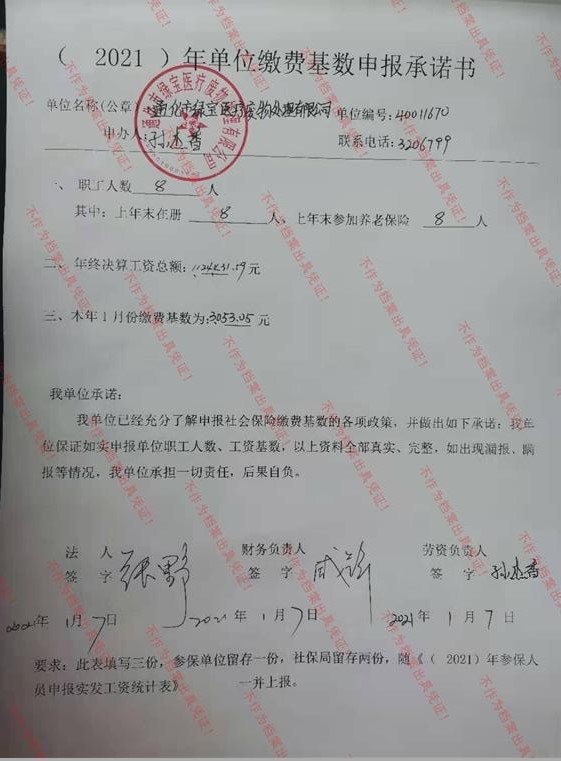 （ 2021 ）年单位缴费基数申报承诺书
单位名称(公章)：通化市绿宝医疗废物处理有限公司 单位编号:40011670
申办人:孙杰香 联系电话:3206799
一、 职工人数 8 人
其中：上年末在册 8 人、上年末参加养老保险 8 人
二、年终决算工资总额: 元
三、本年1月份缴费基数为:3053.05 元
我单位承诺：
我单位已经充分了解申报社会保险缴费基数的各项政策，并做出如下承诺：我单
位保证如实申报单位职工人数、工资基数，以上资料全部真实、完整，如出现漏报、瞒
报等情况，我单位承担一切责任，后果自负。
法 人 财务负责人 劳资负责人
签 字 张野 签 字 签 字 孙杰香
2021年 1月7日 2021年 1月7日 2021年 1月7日
要求：此表填写三份，参保单位留存一份，社保局留存两份，随《（ 2021）年参保人
员申报实发工资统计表》 一并上报。
不作为档案出具凭证！